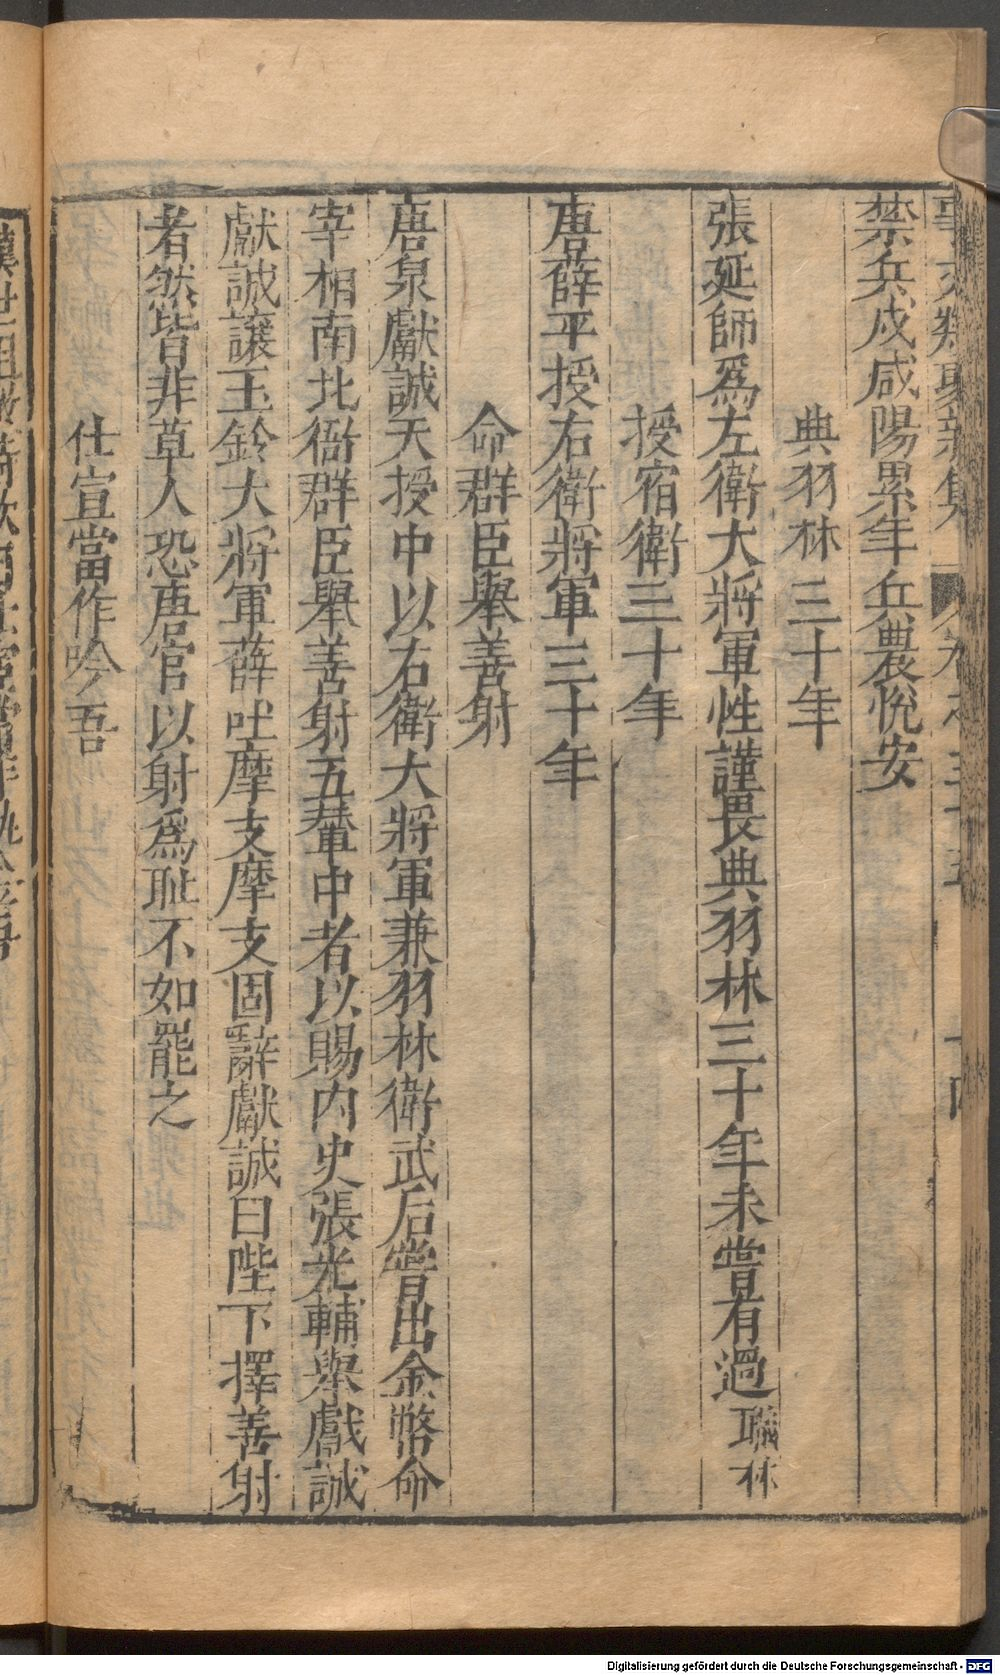 事文類聚新集 卷之三十五 十四
禁兵戍咸陽累年兵農悅安
典羽林三十年
張延師爲左衛大將軍性謹畏典羽林三十年未嘗有過職林
授宿衛三十年
唐薛平授右衛將軍三十年
命群臣舉善射
唐泉獻誠天授中以右衛大將軍兼羽林衛武后嘗出金幣命
宰相南北衙群臣舉善射五輩中者以賜內史張光輔舉獻誠
獻誠讓玉鈐大將軍薛吐摩支摩支固辭獻誠曰陛下擇善射
者然皆非華人恐唐官以射爲耻不如罷之
仕宦當作吟吾
Digitalisierung gefördert durch die Deutsche Forschungsgemeinschaft - DFG